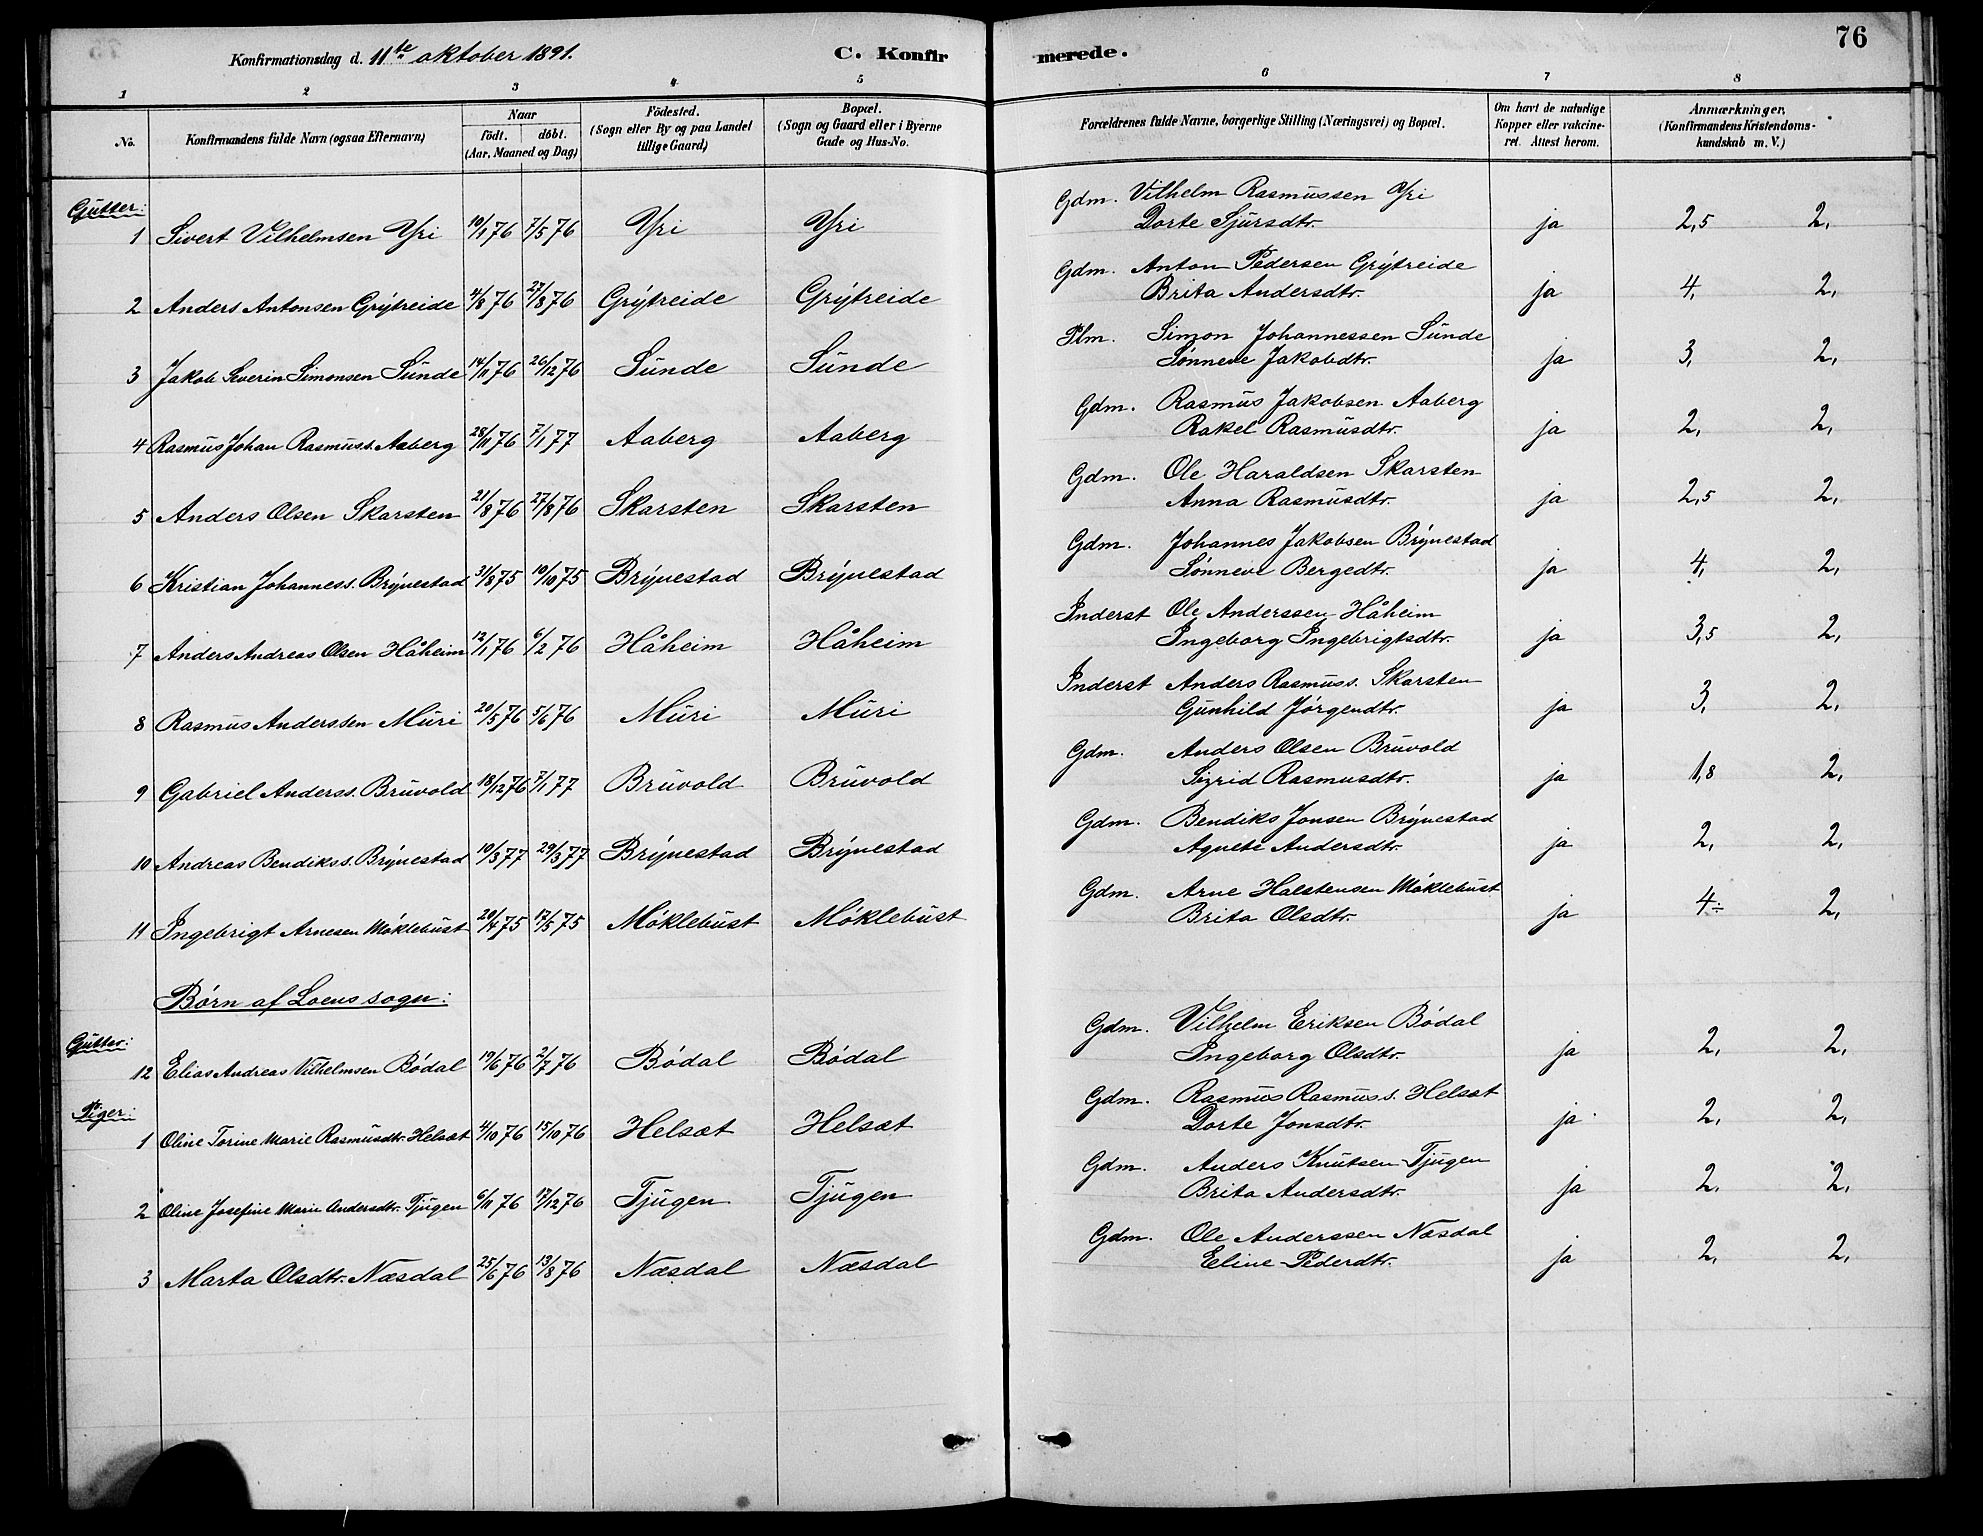 76
Konfirmationsdag d. 11te oktober 1891. C. Konfirmerede.
1 2 3 4 5 6 7 8
No. Konfirmandens fulde Navn (ogsaa Efternavn) Naar födt. döbt. (Aar, Maaned og Dag) Födested. (Sogn eller By og paa Landet tillige Gaard) Bopæl. (Sogn og Gaard eller i Byerne Gade og Hus-No. Forældrenes fulde Navne, borgerlige Stilling (Næringsvei) og Bopæl. Om havt de naturlige Kopper eller vakcineret. Attest herom. Anmærkninger, (Konfirmandens Kristendomskundskab m. V.)
Gutter:
1 Sivert Vilhelmsen Yri 10/1 76 7/5 76 Yri Yri Gdm. Vilhelm Rasmussen Yri
Dorte Sjursdtr. ja 2,5 2,
2 Anders Antonsen Grytreide 4/8 76 27/8 76 Grytreide Grytreide Gdm. Anton Pedersen Grytreide
Brita Andersdtr. ja 4, 2,
3 Jakob Severin Simonsen Sunde 14/11 76 26/12 76 Sunde Sunde Plm. Simon Johannessen Sunde
Sønneve Jakobdtr. ja 3, 2,
4 Rasmus Johan Rasmuss. Aaberg 28/11 76 7/1 77 Aaberg Aaberg Gdm. Rasmus Jakobsen Aaberg
Rakel Rasmusdtr. ja 2, 2,
5 Anders Olsen Skarsten 21/8 76 27/8 76 Skarsten Skarsten Gdm. Ole Haraldsen Skarsten
Anna Rasmusdtr. ja 2,5 2,
6 Kristian Johanness. Brynestad 31/8 75 10/10 75 Brynestad Brynestad Gdm. Johannes Jakobsen Brynestad
Sønneve Bergedtr. ja 4, 2,
7 Anders Andreas Olsen Håheim 12/1 76 6/2 76 Håheim Håheim Inderst Ole Anderssen Håheim
Ingeborg Ingebrigtsdtr. ja 3,5 2,
8 Rasmus Anderssen Muri 20/5 76 5/6 76 Muri Muri Inderst Anders Rasmuss. Skarsten
Gunhild Jørgendtr. ja 3, 2,
9 Gabriel Anderss. Bruvold 18/12 76 7/1 77 Bruvold Bruvold Gdm. Anders Olsen Bruvold
Sigrid Rasmusdtr. ja 1,8 2,
10 Andreas Bendikss. Brynestad 10/3 77 29/3 77 Brynestad Brynestad Gdm. Bendiks Jonsen Brynestad
Agnete Andersdtr. ja 2, 2,
11 Ingebrigt Arnesen Møklebust 20/4 75 17/5 75 Møklebust Møklebust Gdm. Arne Halstensen Møklebust
Brita Olsdtr. ja 4÷ 2,
Børn af Loens sogn:
Gutter:
12 Elias Andreas Vilhelmsen Bødal 19/6 76 2/7 76 Bødal Bødal Gdm. Vilhelm Eriksen Bødal
Ingeborg Olsdtr. ja 2, 2,
Piger:
1 Oline Torine Marie Rasmusdtr. Helsæt 4/10 76 15/10 76 Helsæt Helsæt Gdm. Rasmus Rasmuss. Helsæt
Dorte Jonsdtr. ja 2, 2,
2 Oline Josefine Marie Andersdtr. Tjugen 6/11 76 17/12 76 Tjugen Tjugen Gdm. Anders Knutsen Tjugen
Brita Andersdtr. ja 2, 2,
3 Marta Olsdtr. Næsdal 25/6 76 13/8 76 Næsdal Næsdal Gdm. Ole Anderssen Næsdal
Eline Pederdtr. ja 2, 2,